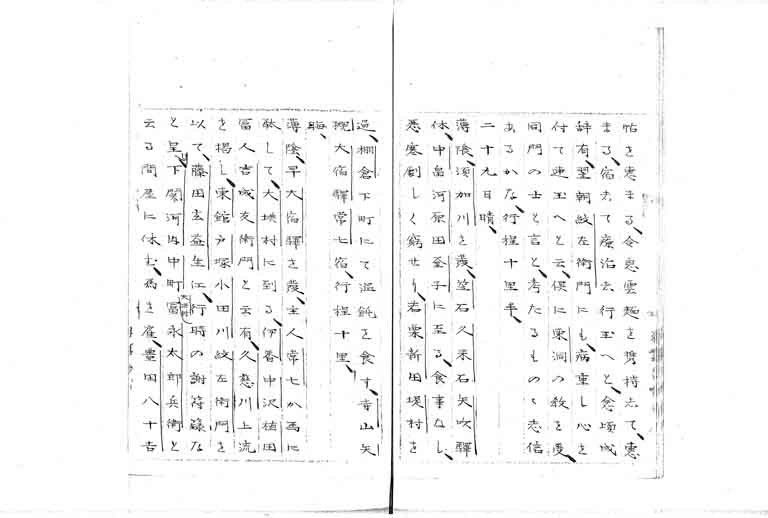 帖を恵まる、令息雲麺を携持して、恵
まる、宿去て療治云行玉へと、愈頃成
辞有、翌朝紋左衛門にも、病重し心を
付て迎玉へと云、倶に東洞の教を受
同門の士と言と、考たるものゝ志信
あるかな、行程十里半、
二十九日晴、
薄陰、須加川を發、笠石久来石矢吹驛
体、中畠河原田至子に至る、食事なし、
悪寒劇しく窮せり、若栗新田堤村を
過、棚倉下町にて温飩を食す、寺山矢
槻大宿驛常七宿、行程十里、
晦、
薄陰、早大宿驛を發、主人常七か馬に
駄して、大垬村に到る、伊香中沢植田
冨人吉成友衛門と云有、久慈川上流
を揚し、東館戸塚小田川紋左衛門を
以て、藤田玄益生江、行時の謝簿籙な
と呈、下関河内中町冨永太郎兵衛と
云る問屋に休む、馬を雇、豊田八十吉